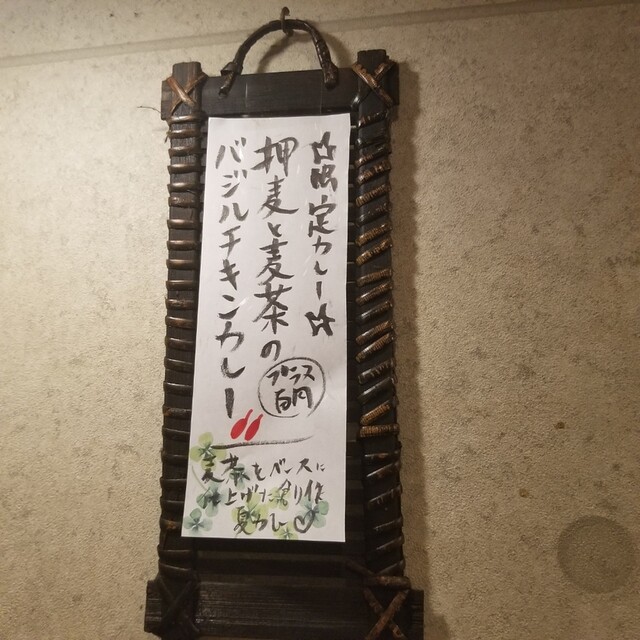 ☆限定カレー☆
押麦と麦茶の
バジルチキンカレー
プラス
百円
麦茶をベースに
仕上げた